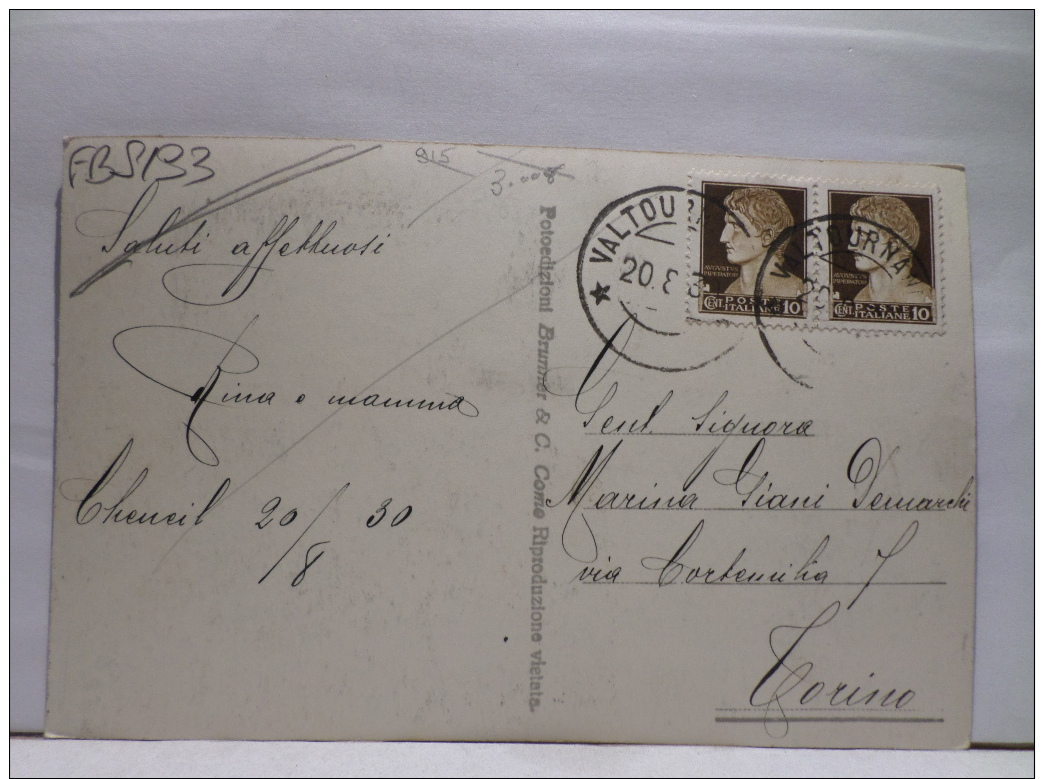 FBS133
915
3.000
Saluti affettuosi
Rina e mamma
Cheneil 20/8 30
Fotoedizioni Brunner & C. Como Riproduzione vietata.
VALTOURN
20.8
AVGVSTVS
IMPERATOR
CENT. POSTE ITALIANE 10
VALTOURNAN
AVGVSTVS
IMPERATOR
CENT. POSTE ITALIANE 10
Gent. Signora
Marina Giani Demarchi
via Cortemilia 7
Torino